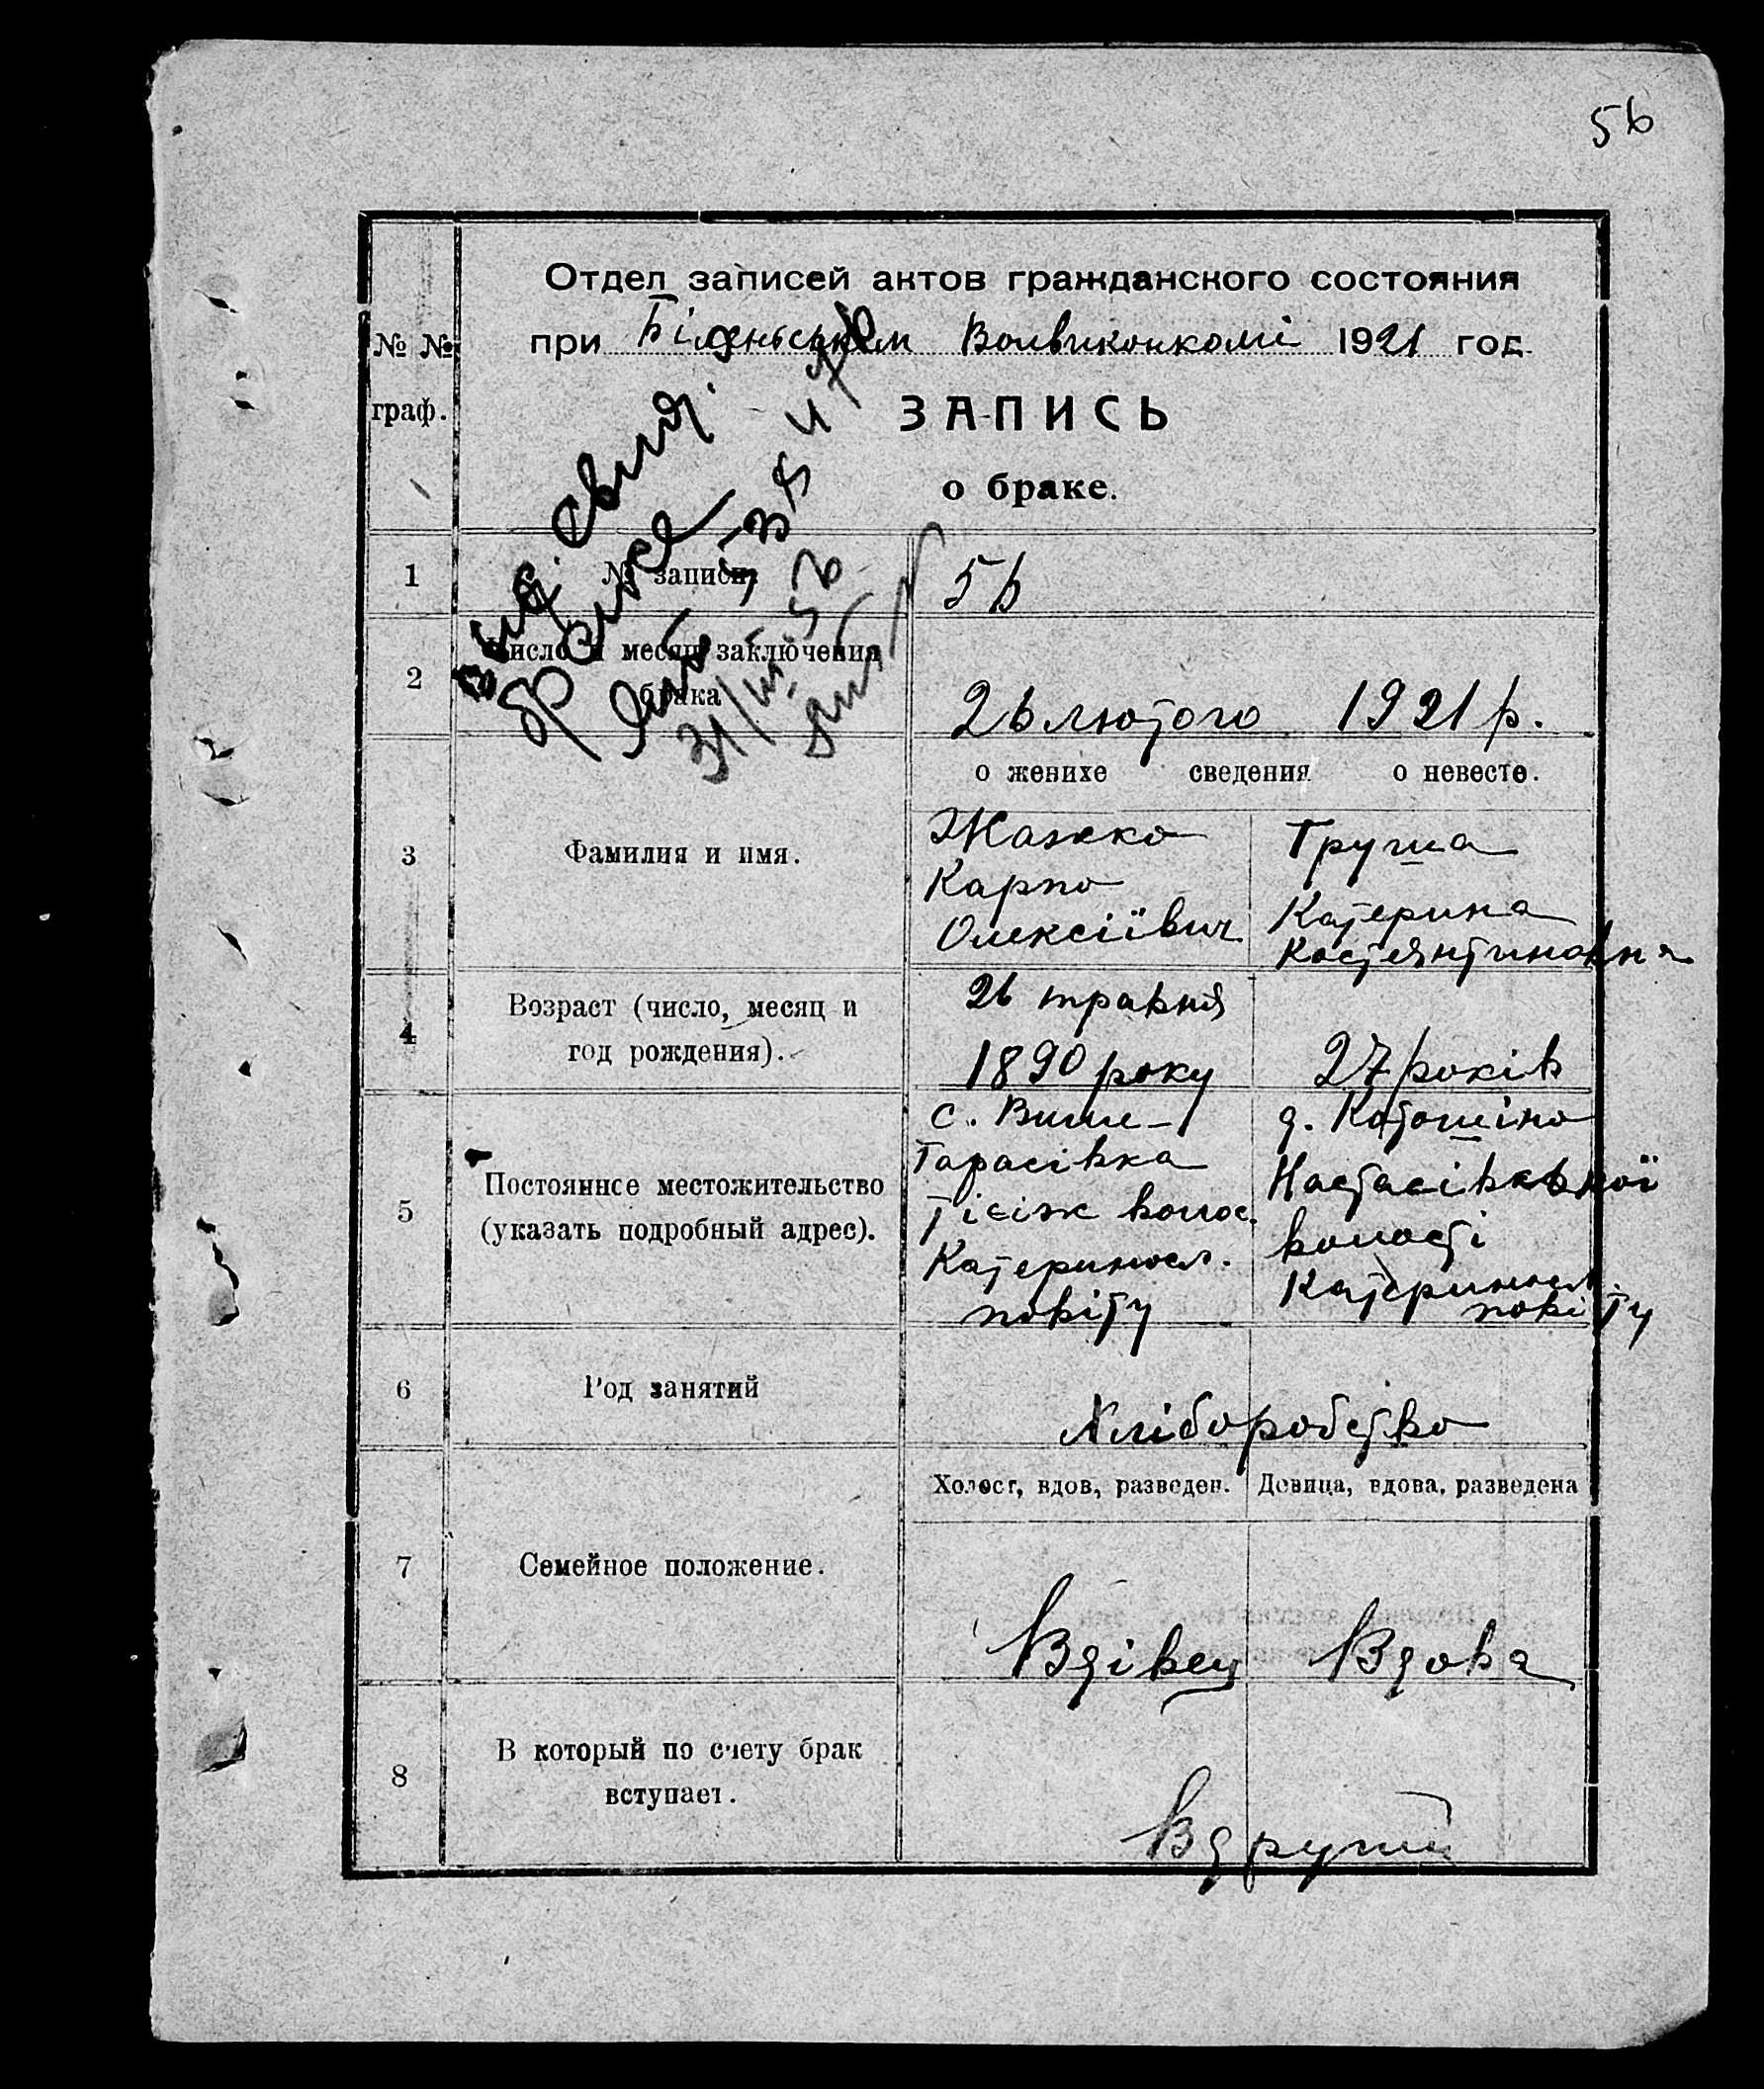 56
Отдел записей актов гражданского состояния
при Біленьськом Волвиконкомі 1921 год.
№ №
граф.
ЗАПИСЬ
о браке.
1
№ записи
56
2
Число и месяц заключения
брака
26 лютого 1921 р.
о женихе сведения о невесте.
3
Фамилия и имя.
Жажко
Карпо
Олексіївич
Труша
Катерина
Костянтиновна
4
Возраст (число, месяц и
год рождения).
26 травня
1890 року
27 років
5
Постоянное местожительство
(указать подробный адрес).
с. Више-
Тарасівка
тієіж волос.
Катериносл.
повіту
д.
волості
Катериносл.
повіту
6
Род занятий
Хліборобство
Холост, вдов, разведен.
Девица, вдова, разведена
7
Семейное положение.
Вдівец
Вдова
8
В который по счету брак
вступает.
В другий
Выд. свид.
о браке